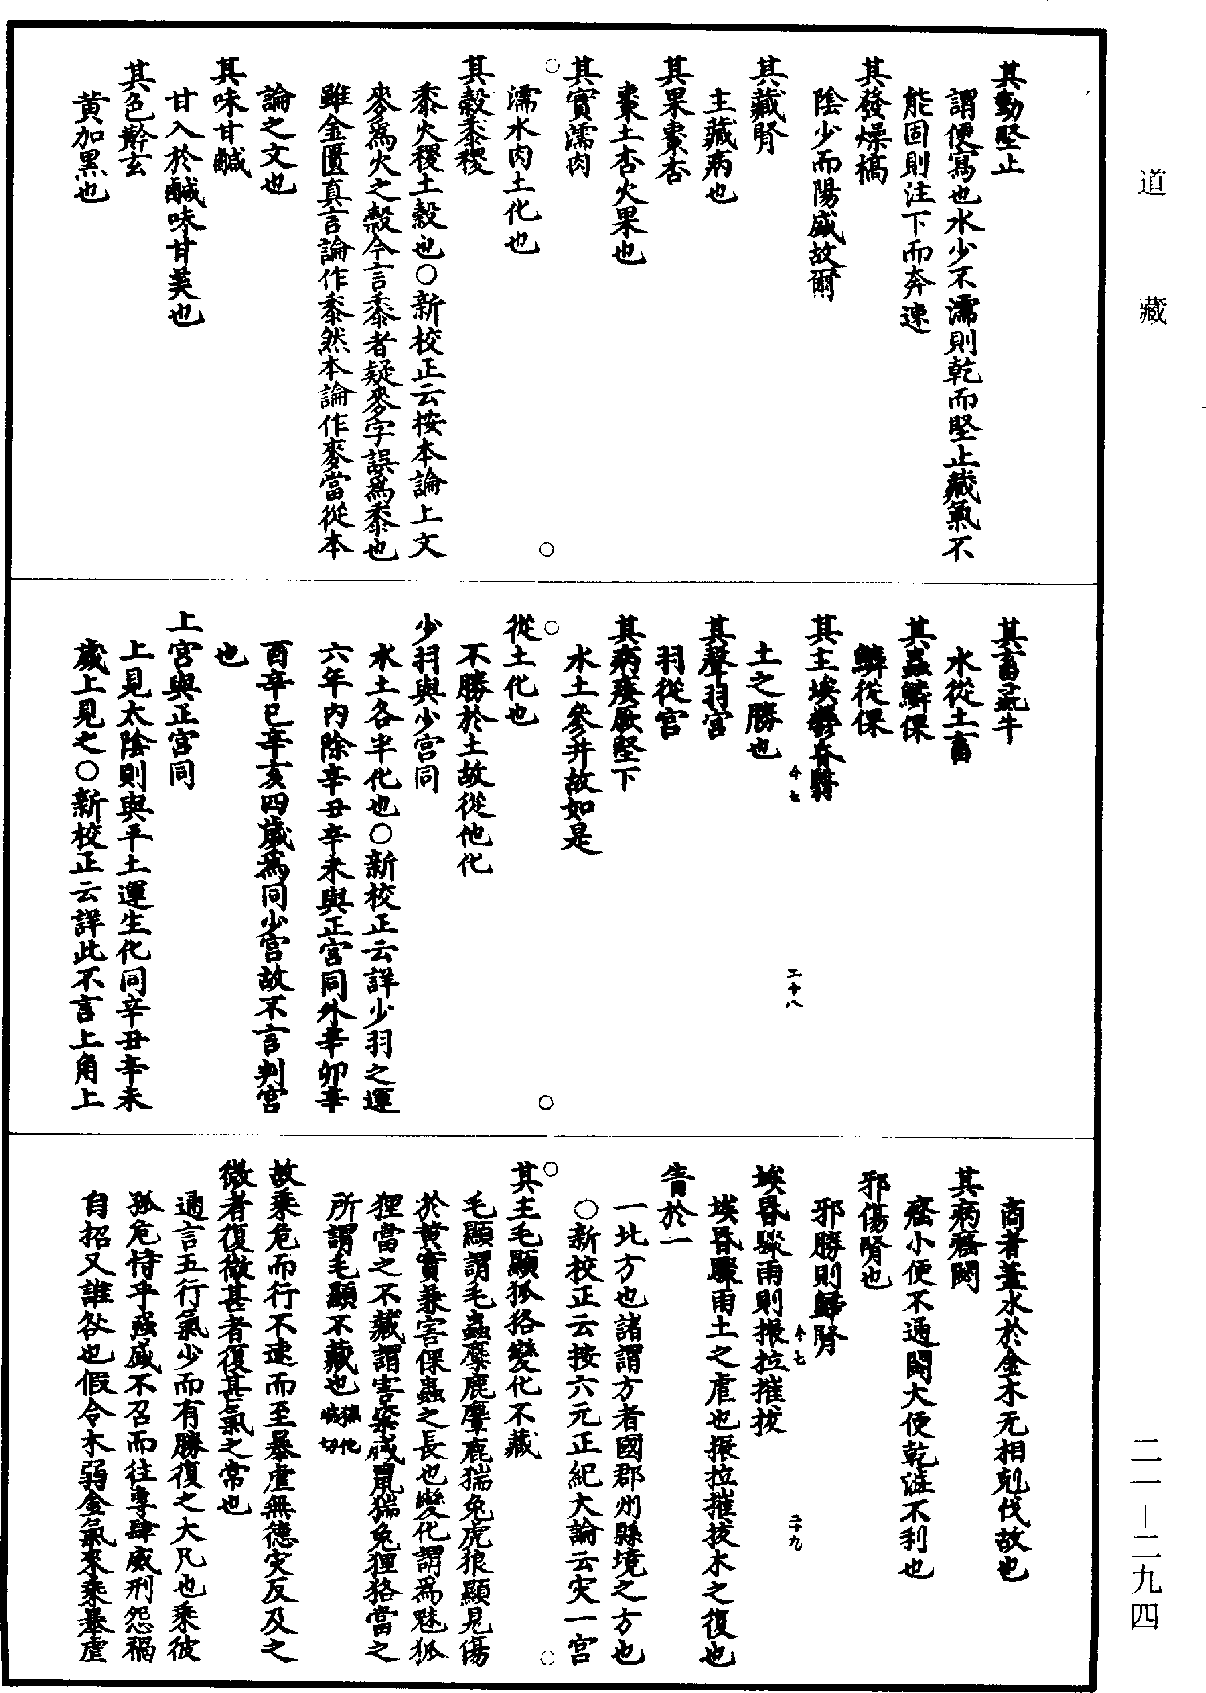 道藏
其動堅止
謂便寫也水少不濡則乾而堅止藏氣不
能固則注下而奔速
其發燥槁
陰少而陽盛故爾
其藏腎
主藏病也
其果棗杏
棗土杏火果也
其實濡肉
濡水肉土化也
其穀黍稷
黍火稷土穀也○新校正云按本論上文
麥爲火之穀今言黍者疑麥字誤爲黍也
雖金匱真言論作黍然本論作麥當從本
論之文也
其味甘鹹
甘入於鹹味甘美也
其色黅玄
黃加黑也
其畜彘牛
水從土畜
其蟲鱗倮
鱗從倮
其主埃鬱昏翳
卡七
二十八
土之勝也
其聲羽宮
羽從宮
其病痿厥堅下
水土參并故如是
從土化也
不勝於土故從他化
少羽與少宮同
水土各半化也○新校正云詳少羽之運
六年內除辛丑辛未與正宮同外辛卯辛
酉辛巳辛亥四歲爲同少宮故不言判宮
也
上宮與正宮同
上見太陰則與平土運生化同辛丑辛未
歲上見之○新校正云詳此不言上角上
商者蓋水於金木无相剋伐故也
其病癃閟
癃小便不通閟大便乾澁不利也
邪傷腎也
邪勝則歸腎
埃昏驟雨則振拉摧拔
卡七
二十九
埃昏驟雨土之虐也振拉摧拔木之復也
眚於一
一北方也諸謂方者國郡州縣境之方也
○新校正云按六元正紀大論云灾一宮
其主毛顯狐狢變化不藏
毛顯謂毛蟲麋鹿麞麃猯兔虎狼顯見傷
於黃實兼害倮蟲之長也變化謂爲魅狐
狸當之不藏謂害粢盛鼠猯兔狸狢當之
所謂毛顯不藏也
故乘危而行不速而至暴虐無德灾反及之
微者復微甚者復甚氣之常也
通言五行氣少而有勝復之大凡也乘彼
孤危恃乎強盛不召而往專肆威刑怨禍
自招又誰咎也假令木弱金氣來乘暴虐
二一—二九四